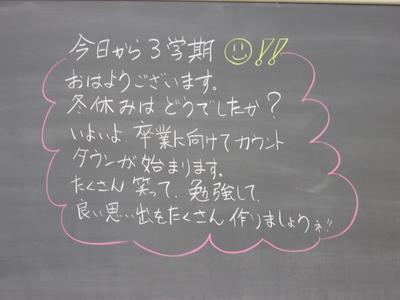 今日から3学期 ☺!!
おはようございます。
冬休みはどうでしたか?
いよいよ、卒業に向けてカウント
ダウンが始まります。
たくさん笑って、勉強して、
良い思い出をたくさん作りましょうネ!!